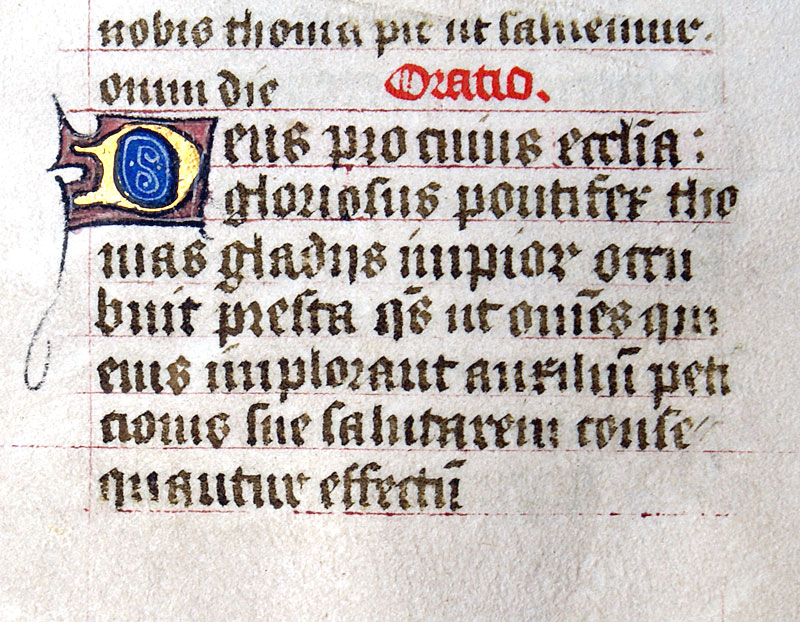 nobis thoma pie ut saluemur.
omni die Oratio.
Deus pro cuius ecclīa :
gloriosus pontifex tho
mas gladijs impioꝝ occu
buit presta qs̄ ut om̄es qui
eius implorant auxiliū peti
cionis sue salutarem conse
quantur effectū